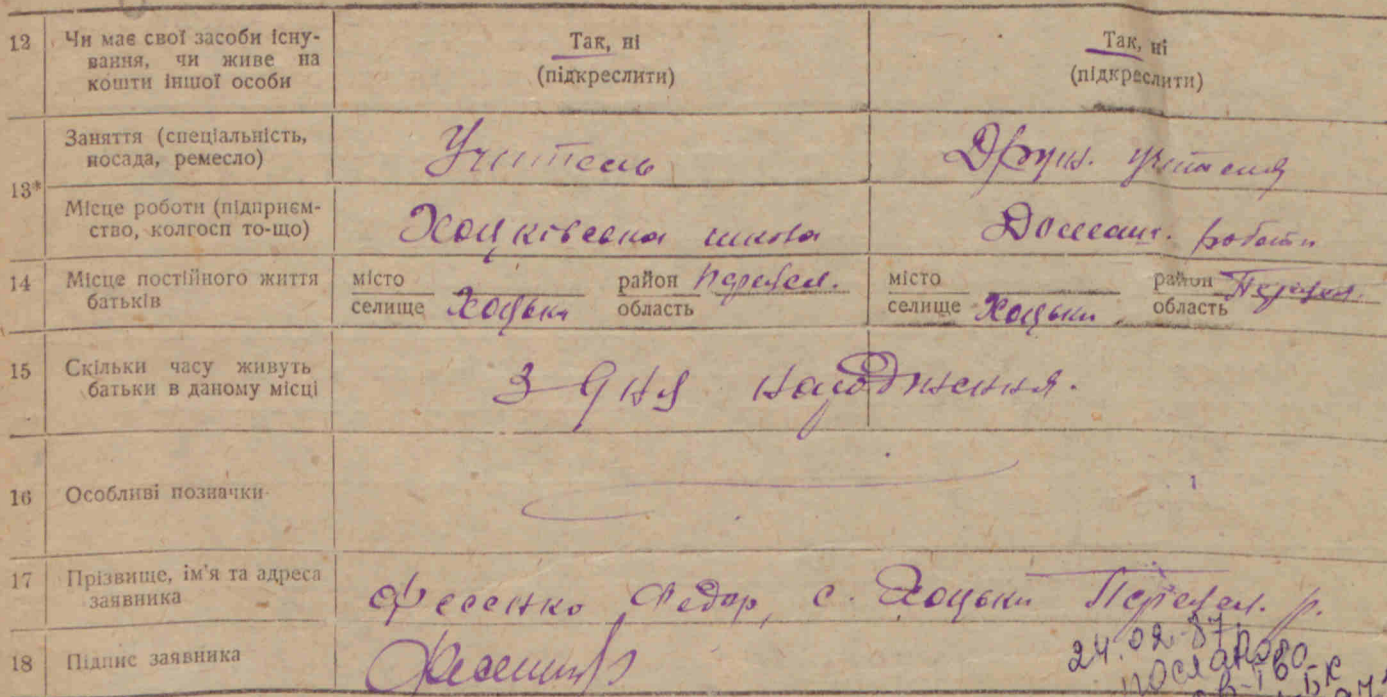 12 Чи має свої засоби існу-
вання, чи живе на
кошти іншої особи
Так, ні
(підкреслити)
Так, ні
(підкреслити)
13* Заняття (спеціальність,
посада, ремесло)
Учитель
Друж. учителя
Місце роботи (підприєм-
ство, колгосп то-що)
Хоцківська школа
Домашн. робота
14 Місце постійного життя
батьків
місто
селище Хоцьки
район Переясл.
область
місто
селище Хоцьки
район Переясл.
область
15 Скільки часу живуть
батьки в даному місці
З дня народження.
16 Особливі позначки
17 Прізвище, ім'я та адреса
заявника
Фесенко Федор, с. Хоцьки Переясл. р.
18 Підпис заявника
24.02.87